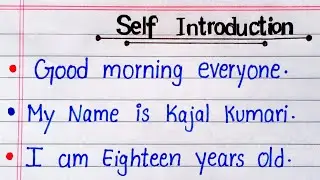 Self Introduction
Good morning everyone.
My Name is Kajal Kumari.
I am Eighteen years old.